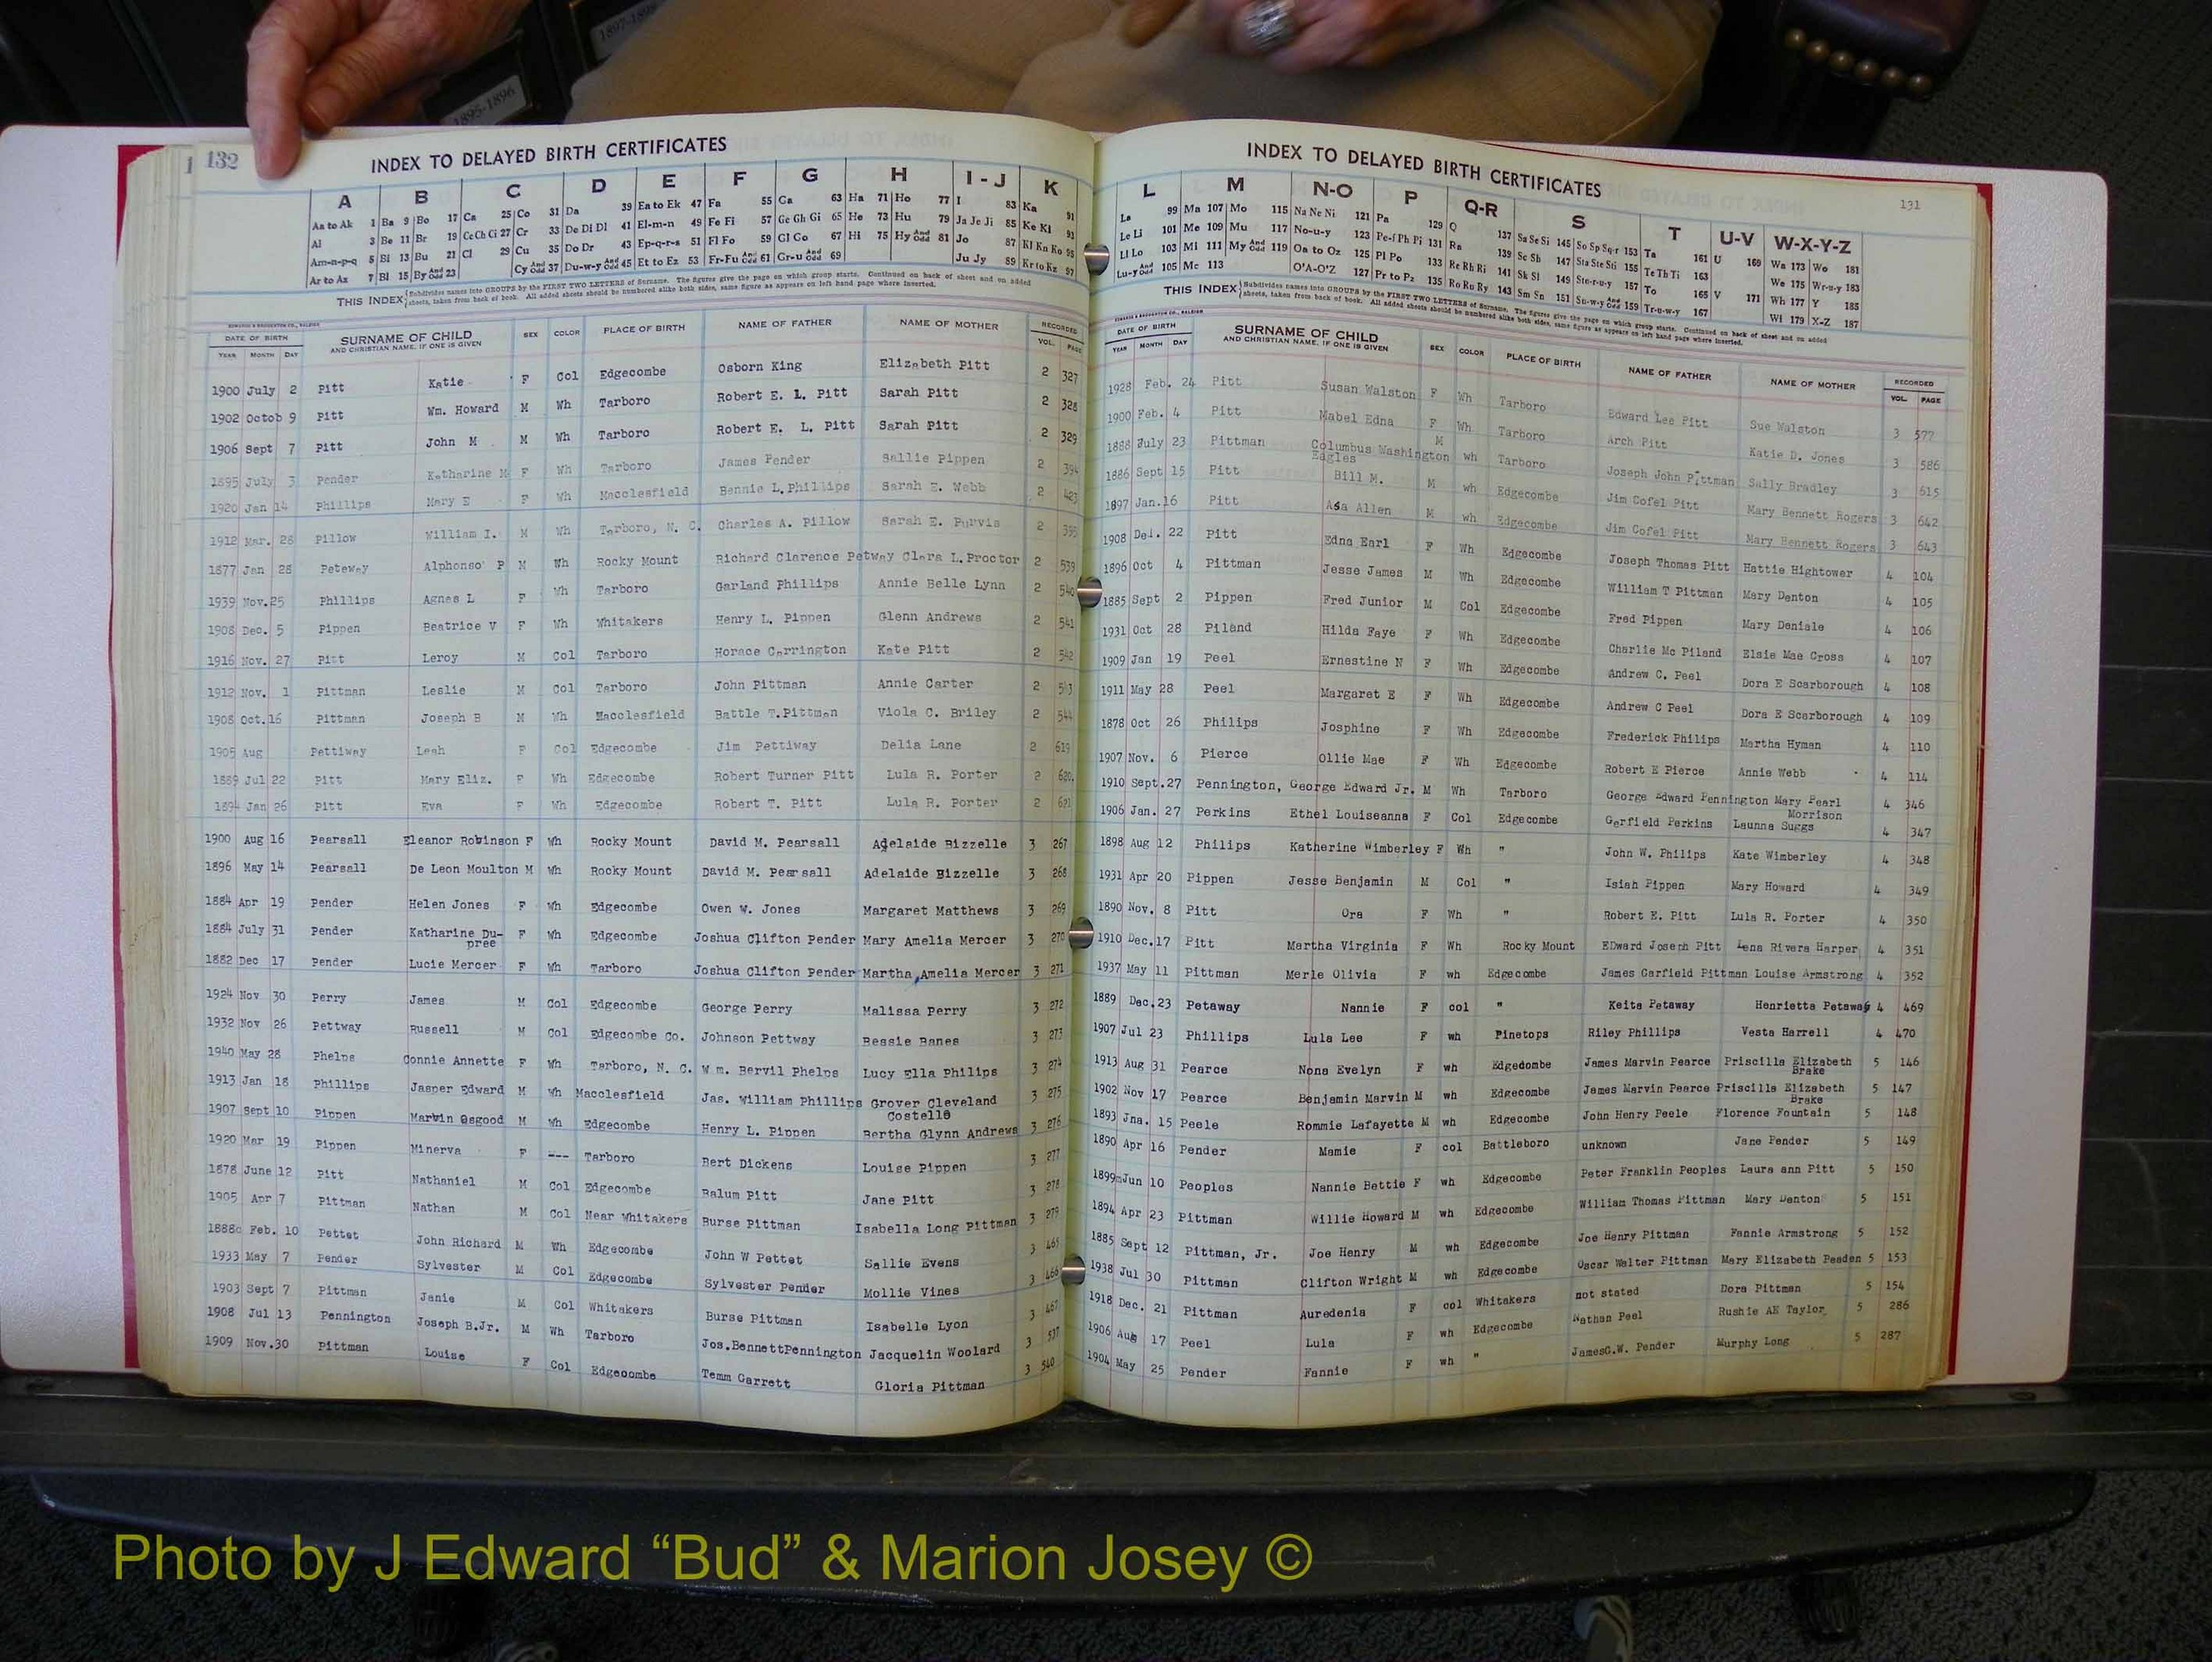 1897-1898
1895-1896
132
INDEX TO DELAYED BIRTH CERTIFICATES
A B C D E F G H I - J K
Aa to Ak 1 Ba 9 Bo 17 Ca 25 Co 31 Da 39 Ea to Ek 47 Fa 55 Ga 63 Ha 71 Ho 77 I 83 Ka 91
Al 3 Be 11 Br 19 Ce Ch Ci 27 Cr 33 De Di Dl 41 El-m-n 49 Fe Fi 57 Ge Gh Gi 65 He 73 Hu 79 Ja Je Ji 85 Ke Ki 93
Am-n-p-q 5 Bi 13 Bu 21 Cl 29 Cu 35 Do Dr 43 Ep-q-r-s 51 Fl Fo 59 Gl Go 67 Hi 75 Hy And Odd 81 Jo 87 Kl Kn Ko 95
Ar to Az 7 Bl 15 By And Odd 23 Cy And Odd 37 Du-w-y And Odd 45 Et to Ez 53 Fr-Fu And Odd 61 Gr-u And Odd 69 Ju Jy 89 Kr to Kz 97
THIS INDEX { Subdivides names into GROUPS by the FIRST TWO LETTERS of Surname. The figures give the page on which group starts. Continued on back of sheet and on added
sheets, taken from back of book. All added sheets should be numbered alike both sides, same figure as appears on left hand page where inserted.
EDWARDS & BROUGHTON CO., RALEIGH
DATE OF BIRTH SURNAME OF CHILD SEX COLOR PLACE OF BIRTH NAME OF FATHER NAME OF MOTHER RECORDED
YEAR MONTH DAY AND CHRISTIAN NAME, IF ONE IS GIVEN VOL. PAGE
1900 July 2 Pitt Katie F Col Edgecombe Osborn King Elizabeth Pitt 2 327
1902 Octob 9 Pitt Wm. Howard M Wh Tarboro Robert E. L. Pitt Sarah Pitt 2 328
1906 Sept 7 Pitt John M M Wh Tarboro Robert E. L. Pitt Sarah Pitt 2 329
1895 July 3 Pender Katharine M F Wh Tarboro James Pender Sallie Pippen 2 394
1920 Jan 14 Phillips Mary E F Wh Macclesfield Bennie L. Phillips Sarah E. Webb 2 423
1912 Mar. 28 Pillow William I. M Wh Tarboro, N. C. Charles A. Pillow Sarah E. Purvis 2 395
1877 Jan 28 Peteway Alphonso P M Wh Rocky Mount Richard Clarence Petway Clara L. Proctor 2 539
1939 Nov. 25 Phillips Agnes L F Wh Tarboro Garland Phillips Annie Belle Lynn 2 540
1908 Dec. 5 Pippen Beatrice V F Wh Whitakers Henry L. Pippen Glenn Andrews 2 541
1916 Nov. 27 Pitt Leroy M Col Tarboro Horace Carrington Kate Pitt 2 542
1912 Nov. 1 Pittman Leslie M Col Tarboro John Pittman Annie Carter 2 543
1908 Oct. 16 Pittman Joseph B M Wh Macclesfield Battle T. Pittman Viola C. Briley 2 544
1905 Aug Pettiway Leah F Col Edgecombe Jim Pettiway Delia Lane 2 619
1889 Jul 22 Pitt Mary Eliz. F Wh Edgecombe Robert Turner Pitt Lula R. Porter 2 620
1894 Jan 26 Pitt Eva F Wh Edgecombe Robert T. Pitt Lula R. Porter 2 621
1900 Aug 16 Pearsall Eleanor Robinson F Wh Rocky Mount David M. Pearsall Adelaide Bizzelle 3 267
1896 May 14 Pearsall De Leon Moulton M Wh Rocky Mount David M. Pearsall Adelaide Bizzelle 3 268
1884 Apr 19 Pender Helen Jones F Wh Edgecombe Owen W. Jones Margaret Matthews 3 269
1884 July 31 Pender Katharine Du- F Wh Edgecombe Joshua Clifton Pender Mary Amelia Mercer 3 270
pree
1882 Dec 17 Pender Lucie Mercer F Wh Tarboro Joshua Clifton Pender Martha Amelia Mercer 3 271
1924 Nov 30 Perry James M Col Edgecombe George Perry Malissa Perry 3 272
1932 Nov 26 Pettway Russell M Col Edgecombe Co. Johnson Pettway Bessie Banes 3 273
1940 May 28 Phelps Connie Annette F Wh Tarboro, N. C. Wm. Bervil Phelps Lucy Ella Philips 3 274
1913 Jan 18 Phillips Jasper Edward M Wh Macclesfield Jas. William Phillips Grover Cleveland 3 275
Costelle
1907 Sept 10 Pippen Marvin Osgood M Wh Edgecombe Henry L. Pippen Bertha Glynn Andrews 3 276
1920 Mar 19 Pippen Minerva F --- Tarboro Bert Dickens Louise Pippen 3 277
1878 June 12 Pitt Nathaniel M Col Edgecombe Balum Pitt Jane Pitt 3 278
1905 Apr 7 Pittman Nathan M Col Near Whitakers Burse Pittman Isabella Long Pittman 3 279
1888 Feb. 10 Pettet John Richard M Wh Edgecombe John W Pettet Sallie Evens 3 465
1933 May 7 Pender Sylvester M Col Edgecombe Sylvester Pender Mollie Vines 3 466
1903 Sept 7 Pittman Janie M Col Whitakers Burse Pittman Isabelle Lyon 3 467
1908 Jul 13 Pennington Joseph B.Jr. M Wh Tarboro Jos.BennettPennington Jacquelin Woolard 3 537
1909 Nov.30 Pittman Louise F Col Edgecombe Temm Garrett Gloria Pittman 3 540
INDEX TO DELAYED BIRTH CERTIFICATES
131
L M N-O P Q-R S T U-V W-X-Y-Z
La 99 Ma 107 Mo 115 Na Ne Ni 121 Pa 129 Q 137 Sa Se Si 145 So Sp Sq-r 153 Ta 161 U 169 Wa 173 Wo 181
Le Li 101 Me 109 Mu 117 No-u-y 123 Pe-f Ph Pi 131 Ra 139 Sc Sh 147 Sta Ste Sti 155 Te Th Ti 163 We 175 Wr-u-y 183
Ll Lo 103 Mi 111 My And Odd 119 Oa to Oz 125 Pl Po 133 Re Rh Ri 141 Sk Sl 149 Sto-r-u-y 157 To 165 V 171 Wh 177 Y 185
Lu-y And Odd 105 Mc 113 O'A-O'Z 127 Pr to Pz 135 Ro Ru Ry 143 Sm Sn 151 Su-w-y And Odd 159 Tr-u-w-y 167 Wi 179 X-Z 187
THIS INDEX { Subdivides names into GROUPS by the FIRST TWO LETTERS of Surname. The figures give the page on which group starts. Continued on back of sheet and on added
sheets, taken from back of book. All added sheets should be numbered alike both sides, same figure as appears on left hand page where inserted.
EDWARDS & BROUGHTON CO., RALEIGH
DATE OF BIRTH SURNAME OF CHILD SEX COLOR PLACE OF BIRTH NAME OF FATHER NAME OF MOTHER RECORDED
YEAR MONTH DAY AND CHRISTIAN NAME, IF ONE IS GIVEN VOL. PAGE
1928 Feb. 24 Pitt Susan Walston F Wh Tarboro Edward Lee Pitt Sue Walston 3 577
1900 Feb. 4 Pitt Mabel Edna F Wh Tarboro Arch Pitt Katie D. Jones 3 586
1888 July 23 Pittman Columbus Washington M wh Tarboro Joseph John Pittman Sally Bradley 3 615
Eagles
1886 Sept 15 Pitt Bill M. M wh Edgecombe Jim Cofel Pitt Mary Bennett Rogers 3 642
1897 Jan.16 Pitt Asa Allen M wh Edgecombe Jim Cofel Pitt Mary Bennett Rogers 3 643
1908 Del. 22 Pitt Edna Earl F Wh Edgecombe Joseph Thomas Pitt Hattie Hightower 4 104
1896 Oct 4 Pittman Jesse James M Wh Edgecombe William T Pittman Mary Denton 4 105
1885 Sept 2 Pippen Fred Junior M Col Edgecombe Fred Pippen Mary Deniale 4 106
1931 Oct 28 Piland Hilda Faye F Wh Edgecombe Charlie Mc Piland Elsie Mae Cross 4 107
1909 Jan 19 Peel Ernestine N F Wh Edgecombe Andrew C. Peel Dora E Scarborough 4 108
1911 May 28 Peel Margaret E F Wh Edgecombe Andrew C Peel Dora E Scarborough 4 109
1878 Oct 26 Philips Josphine F Wh Edgecombe Frederick Philips Martha Hyman 4 110
1907 Nov. 6 Pierce Ollie Mae F Wh Edgecombe Robert E Pierce Annie Webb 4 114
1910 Sept.27 Pennington, George Edward Jr. M Wh Tarboro George Edward Pennington Mary Pearl 4 346
Morrison
1906 Jan. 27 Perkins Ethel Louiseanna F Col Edgecombe Gerfield Perkins Launna Suggs 4 347
1898 Aug 12 Philips Katherine Wimberley F Wh " John W. Philips Kate Wimberley 4 348
1931 Apr 20 Pippen Jesse Benjamin M Col " Isiah Pippen Mary Howard 4 349
1890 Nov. 8 Pitt Ora F Wh " Robert E. Pitt Lula R. Porter 4 350
1910 Dec.17 Pitt Martha Virginia F Wh Rocky Mount EDward Joseph Pitt Lena Rivera Harper 4 351
1937 May 11 Pittman Merle Olivia F wh Edgecombe James Garfield Pittman Louise Armstrong 4 352
1889 Dec.23 Petaway Nannie F col " Keita Petaway Henrietta Petaway 4 469
1907 Jul 23 Phillips Lula Lee F wh Pinetops Riley Phillips Vesta Harrell 4 470
1913 Aug 31 Pearce Nona Evelyn F wh Edgedombe James Marvin Pearce Priscilla Elizabeth 5 146
Brake
1902 Nov 17 Pearce Benjamin Marvin M wh Edgecombe James Marvin Pearce Priscilla Elizabeth 5 147
Brake
1893 Jna. 15 Peele Rommie Lafayette M wh Edgecombe John Henry Peele Florence Fountain 5 148
1890 Apr 16 Pender Mamie F col Battleboro unknown Jane Pender 5 149
1899 Jun 10 Peoples Nannie Bettie F wh Edgecombe Peter Franklin Peoples Laura ann Pitt 5 150
1894 Apr 23 Pittman Willie Howard M wh Edgecombe William Thomas Pittman Mary Denton 5 151
1885 Sept 12 Pittman, Jr. Joe Henry M wh Edgecombe Joe Henry Pittman Fannie Armstrong 5 152
1938 Jul 30 Pittman Clifton Wright M wh Edgecombe Oscar Walter Pittman Mary Elizabeth Peaden 5 153
1918 Dec. 21 Pittman Auredenia F col Whitakers not stated Dora Pittman 5 154
1906 Aug 17 Peel Lula F wh Edgecombe Nathan Peel Rushie AE Taylor 5 286
1904 May 25 Pender Fannie F wh " JamesG.W. Pender Murphy Long 5 287
Photo by J Edward “Bud” & Marion Josey ©